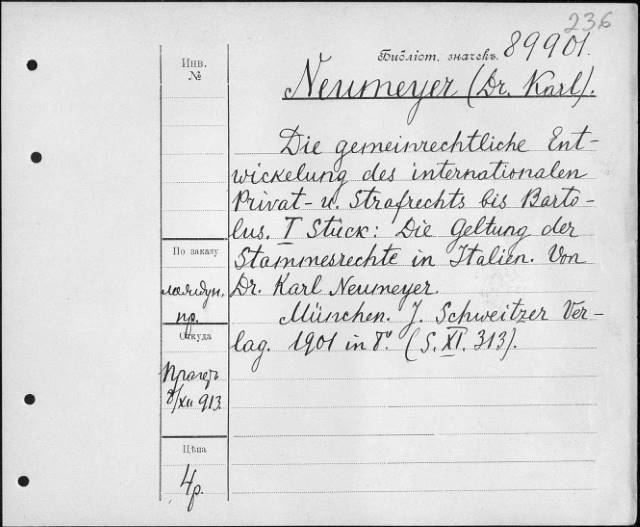 236
Библіот. значекъ. 89901.
Neumeyer (Dr. Karl).
Инв.
№
Die gemeinrechtliche Ent-
wickelung des internationalen
Privat- u. Strafrechts bis Barto-
lus. I Stück: Die Geltung der
Stammesrechte in Italien. Von
Dr. Karl Neumeyer.
München. J. Schweitzer Ver-
lag. 1901 in 8º. (S. XI. 313).
По заказу
пр.
Откуда
Прагеръ
8/XII 913.
Цѣна
4р.